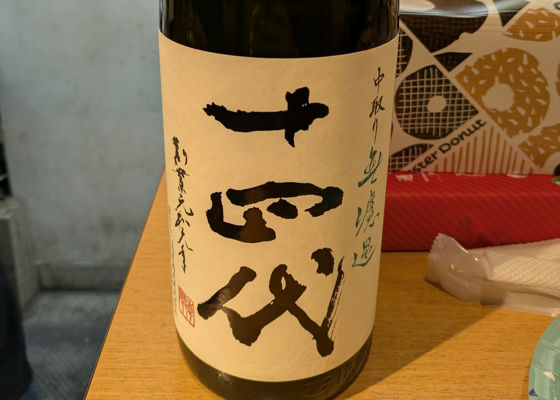 中取り無濾過
十四代
創業元和元年
ster Donut